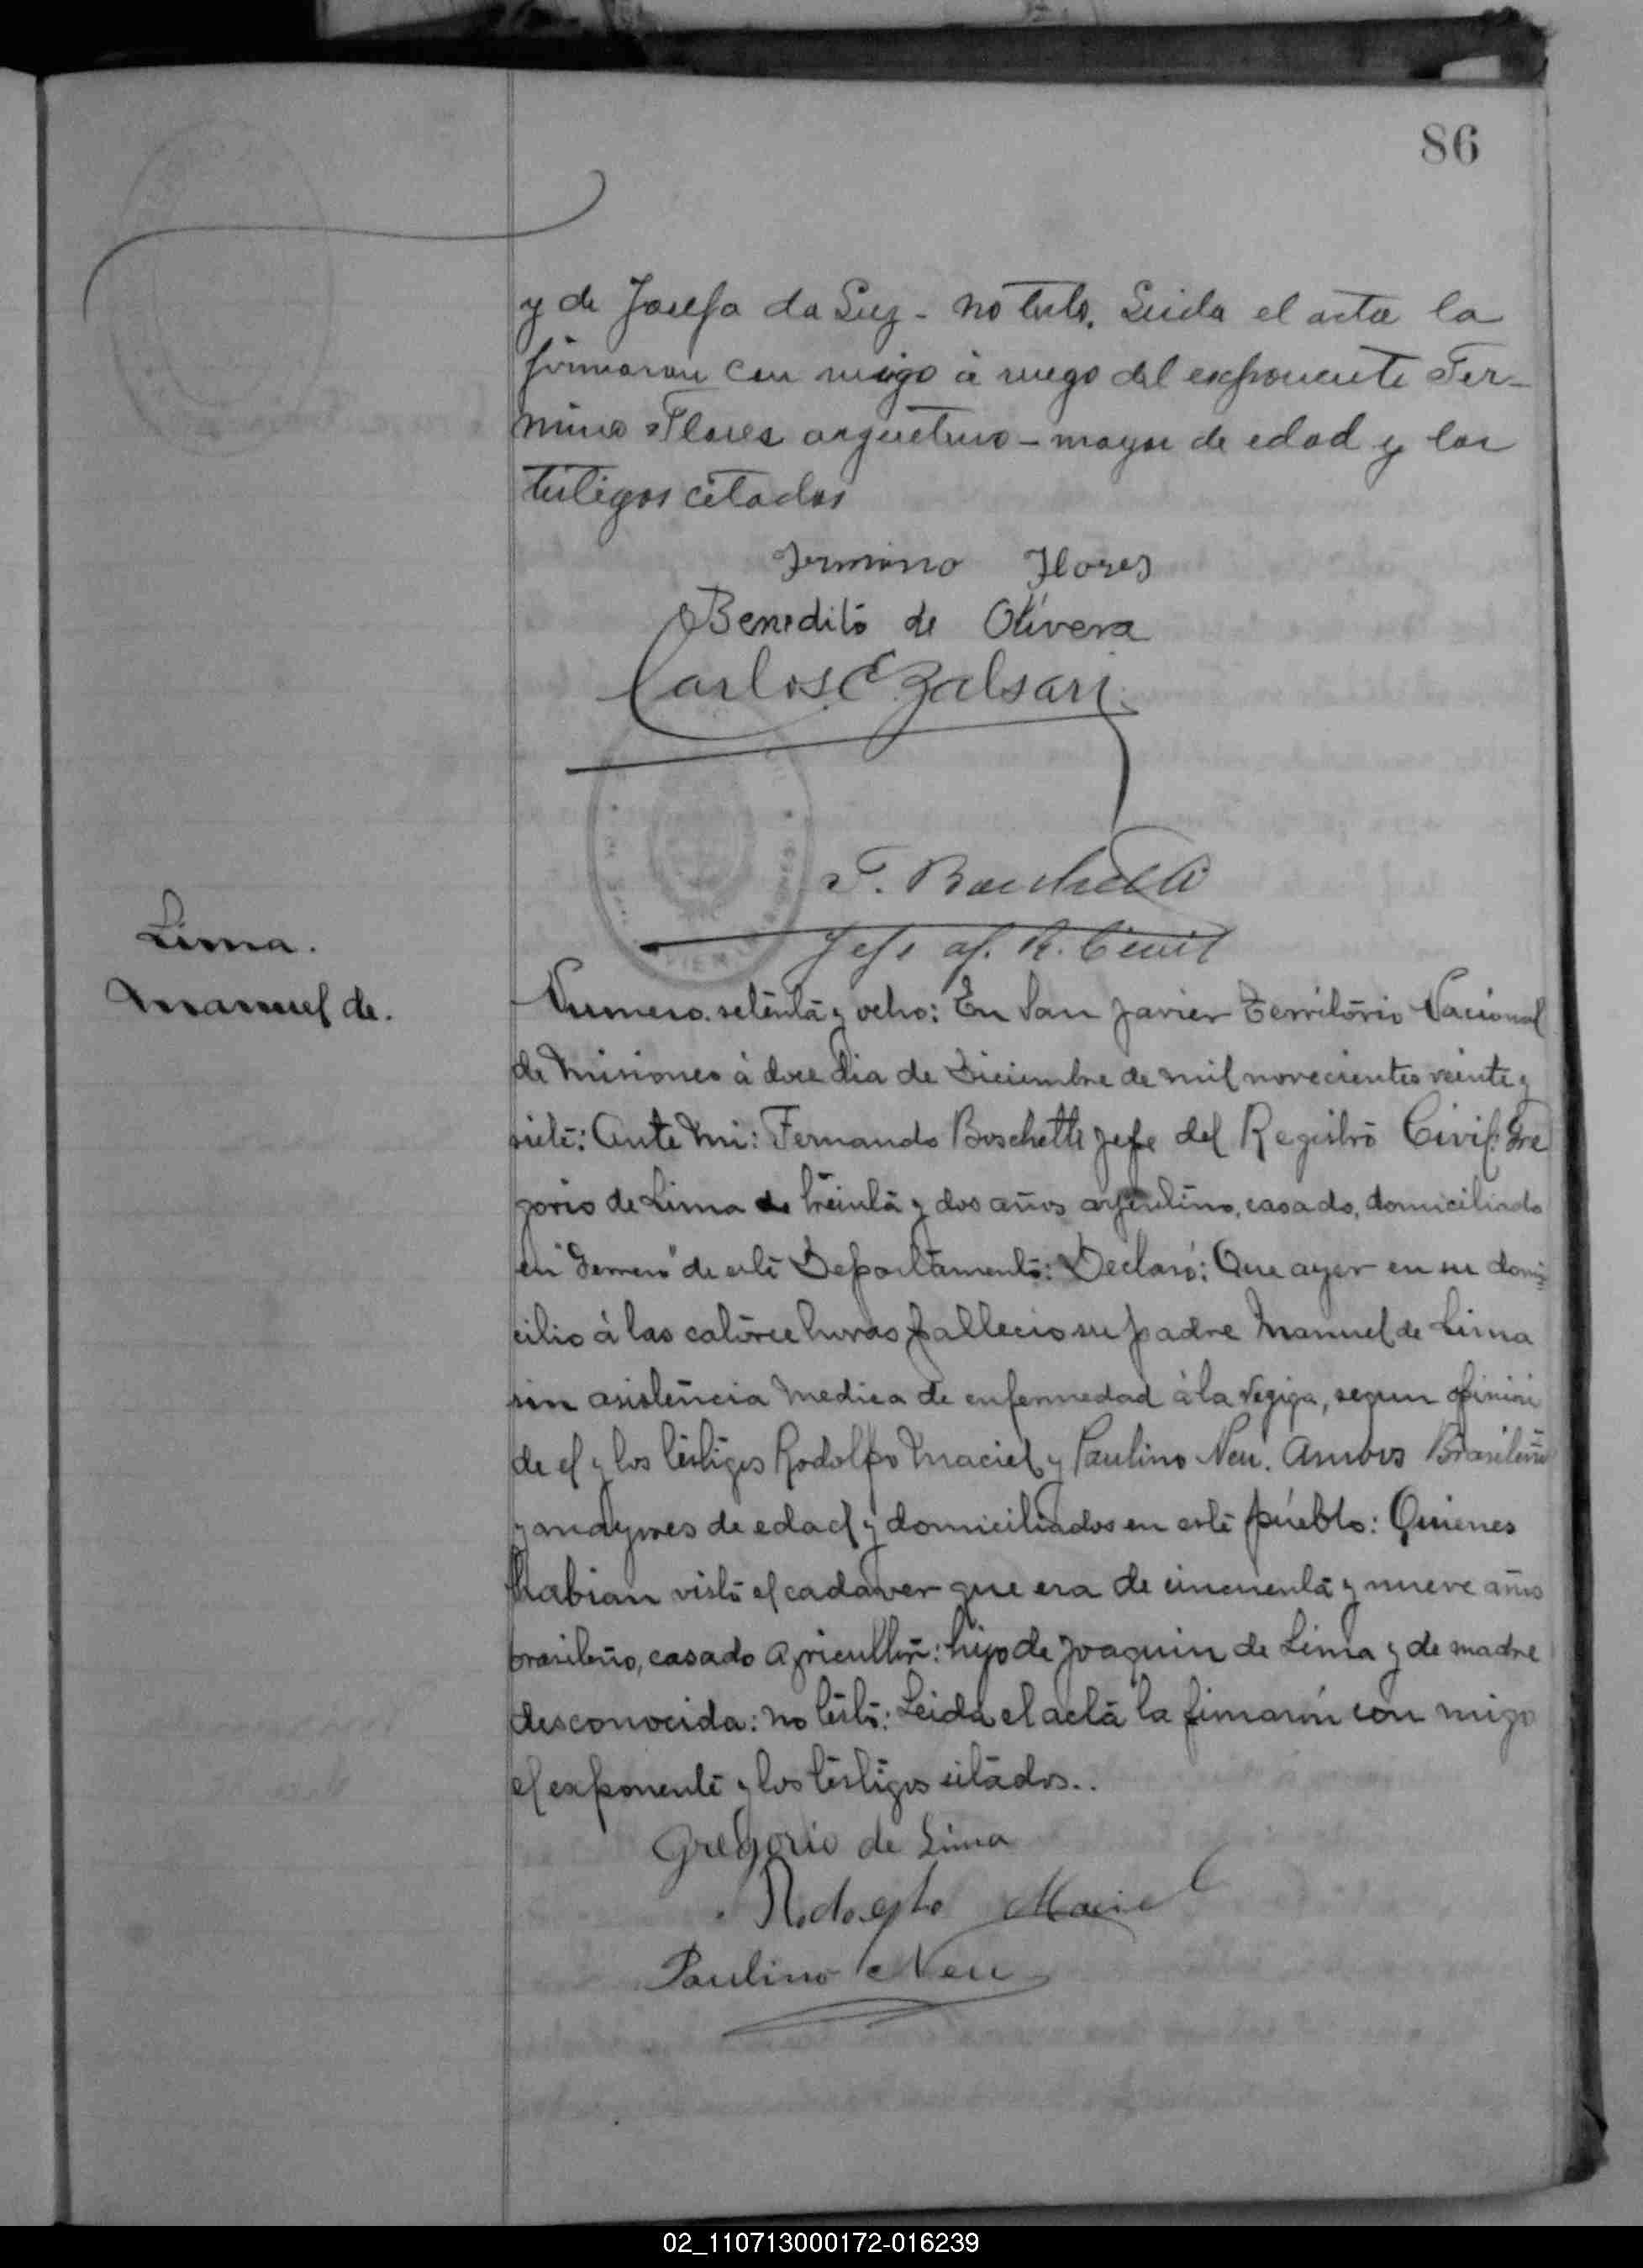 86
y de Josefa da Luz - no testo. Leida el acta la
firmaron con migo à ruego del exponente Fer-
mino Flores argentino - mayor de edad y los
testigos citados
Fermino Flores
Benedito de Olivera
Carlos E
F. Boschetti
Jefe of. R. Civil
Lima.
Manuel de.
Numero setenta y ocho: En San Javier Territorio Nacional
de Misiones à doce dia de Diciembre de mil novecientos veinte y
siete: Ante Mi: Fernando Boschetti Jefe del Registro Civil: Gre
gorio de Lima de treinta y dos años argentino, casado, domiciliado
en de este Departamento: Declaró: Que ayer en su domi=
cilio à las catorce horas fallecio su padre Manuel de Lima
sin asistencia Medica de enfermedad à la vegiga, segun opinion
de el y los testigos Rodolfo Maciel y Paulino Neu. Amvos Brasileños
y mayores de edad y domiciliados en este pueblo: Quienes
habian visto el cadaver que era de cincuenta y nueve años
brasileño, casado Agricultor: hijo de Joaquin de Lima y de madre
desconocida: no testo: Leida el acta la fimaron con migo
el exponente y los testigos citados..
Gregorio de Lima
Rodolfo Maciel
Paulino Neu
02_110713000172-016239